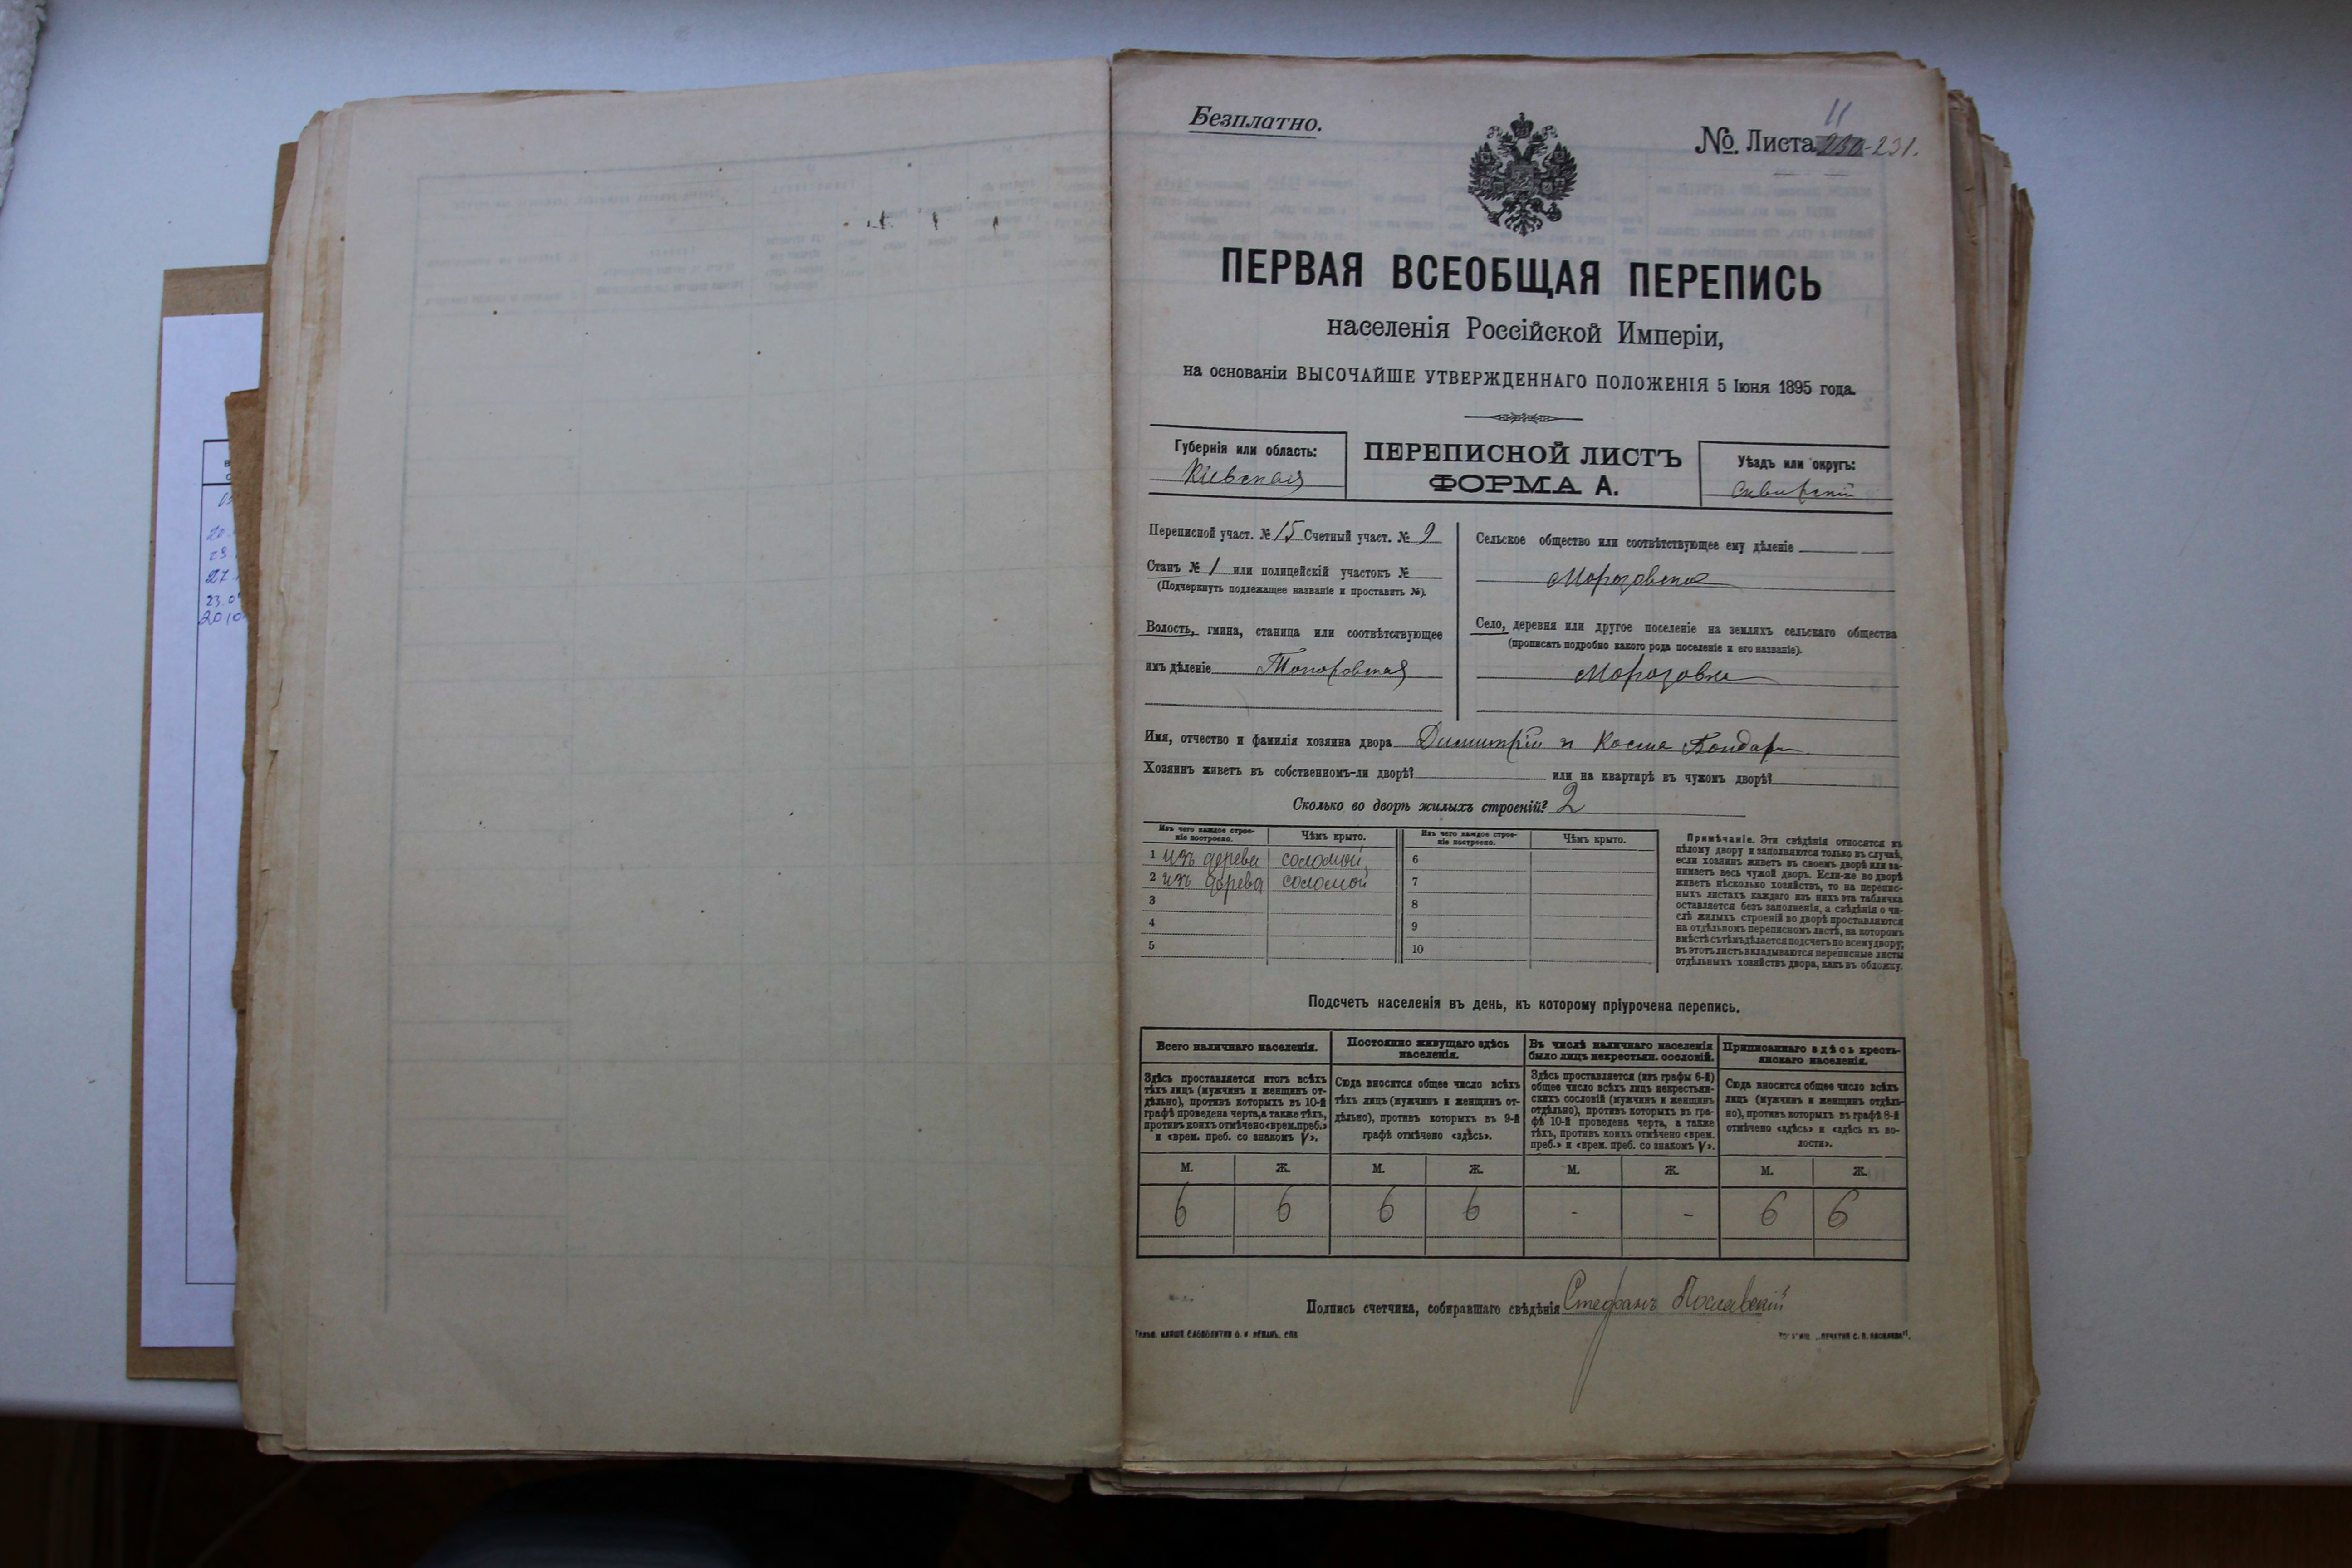 Безплатно.
11
№. Листа 230-231.
ПЕРВАЯ ВСЕОБЩАЯ ПЕРЕПИСЬ
населенія Россійской Имперіи,
на основаніи ВЫСОЧАЙШЕ УТВЕРЖДЕННАГО ПОЛОЖЕНІЯ 5 Іюня 1895 года.
Губернія или область:
Кіевская
ПЕРЕПИСНОЙ ЛИСТЪ
ФОРМА А.
Уѣздъ или округъ:
Сквирскій
Переписной участ. № 15 Счетный участ. № 9
Станъ № 1 или полицейскій участокъ №
(Подчеркнуть подлежащее названіе и проставить №).
Волость, гмина, станица или соотвѣтствующее
имъ дѣленіе Топоровская
Сельское общество или соотвѣтствующее ему дѣленіе
Морозовское
Село, деревня или другое поселеніе на земляхъ сельскаго общества
(прописать подробно какого рода поселеніе и его названіе).
Морозовка
Имя, отчество и фамилія хозяина двора Димитрій и Косма Бондарь
Хозяинъ живетъ въ собственномъ-ли дворѣ? или на квартирѣ въ чужомъ дворѣ?
Сколько во дворѣ жилыхъ строеній? 2
Изъ чего каждое строе-
ніе построено.
Чѣмъ крыто.
Изъ чего каждое строе-
ніе построено.
Чѣмъ крыто.
1 изъ дерева соломой
2 изъ дерева соломой
3
4
5
6
7
8
9
10
Примѣчаніе. Эти свѣдѣнія относятся къ
цѣлому двору и заполняются только въ случаѣ,
если хозяинъ живетъ въ своемъ дворѣ или за-
нимаетъ весь чужой дворъ. Если-же во дворѣ
живетъ нѣсколько хозяйствъ, то на перепис-
ныхъ листахъ каждаго изъ нихъ эта табличка
оставляется безъ заполненія, а свѣдѣнія о чи-
слѣ жилыхъ строеній во дворѣ проставляются
на отдѣльномъ переписномъ листѣ, на которомъ
вмѣстѣ съ тѣмъ дѣлается подсчетъ по всему двору;
въ этотъ листъ вкладываются переписные листы
отдѣльныхъ хозяйствъ двора, какъ въ обложку.
Подсчетъ населенія въ день, къ которому пріурочена перепись.
Всего наличнаго населенія.
Здѣсь проставляется итогъ всѣхъ
тѣхъ лицъ (мужчинъ и женщинъ от-
дѣльно), противъ которыхъ въ 10-й
графѣ проведена черта, а также тѣхъ,
противъ коихъ отмѣчено «врем. преб.»
и «врем. преб. со знакомъ V».
Постоянно живущаго здѣсь
населенія.
Сюда вносится общее число всѣхъ
тѣхъ лицъ (мужчинъ и женщинъ от-
дѣльно), противъ которыхъ въ 9-й
графѣ отмѣчено «здѣсь».
Въ числѣ наличнаго населенія
было лицъ некрестьян. сословій.
Здѣсь проставляется (изъ графы 6-й)
общее число всѣхъ лицъ некрестьян-
скихъ сословій (мужчинъ и женщинъ
отдѣльно), противъ которыхъ въ гра-
фѣ 10-й проведена черта, а также
тѣхъ, противъ коихъ отмѣчено «врем.
преб.» и «врем. преб. со знакомъ V».
Приписаннаго здѣсь кресть-
янскаго населенія.
Сюда вносится общее число всѣхъ
лицъ (мужчинъ и женщинъ отдѣль-
но), противъ которыхъ въ графѣ 8-й
отмѣчено «здѣсь» и «здѣсь къ во-
лости».
М. Ж. М. Ж. М. Ж. М. Ж.
6 6 6 6 - - 6 6
Подпись счетчика, собиравшаго свѣдѣнія Стефанъ Пославскій